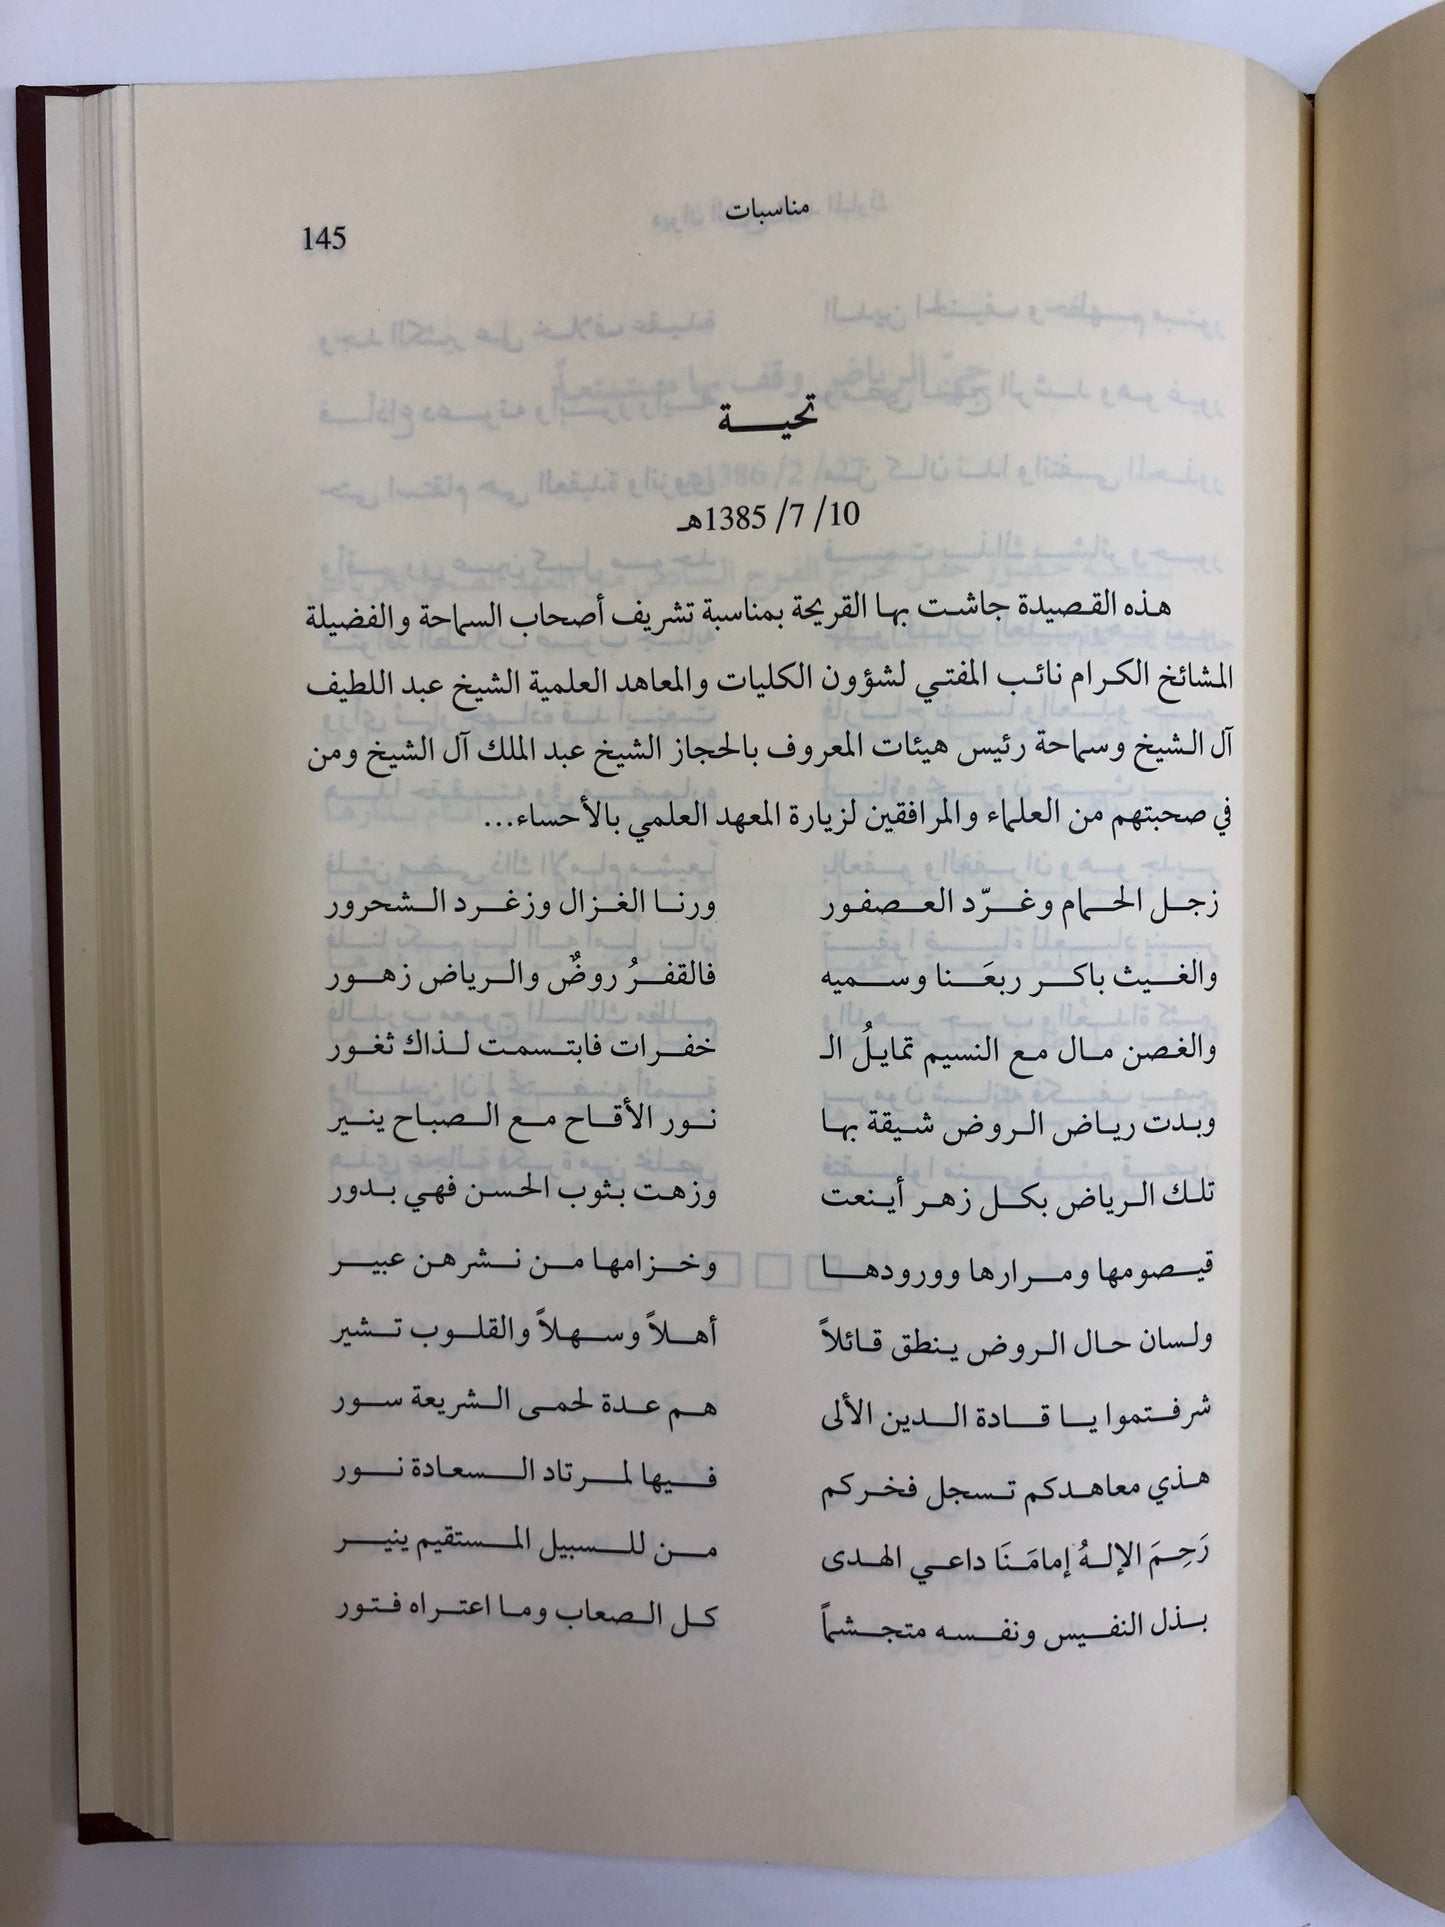 مناسبات
145
تحيـــة
10/ 7/ 1385هـ
هذه القصيدة جاشت بها القريحة بمناسبة تشريف أصحاب السماحة والفضيلة
المشائخ الكرام نائب المفتي لشؤون الكليات والمعاهد العلمية الشيخ عبد اللطيف
آل الشيخ وسماحة رئيس هيئات المعروف بالحجاز الشيخ عبد الملك آل الشيخ ومن
في صحبتهم من العلماء والمرافقين لزيارة المعهد العلمي بالأحساء...
زجل الحمام وغرّد العصفور ورنا الغزال وزغرد الشحرور
والغيث باكر ربعَنا وسميه فالقفرُ روضٌ والرياض زهور
والغصن مال مع النسيم تمايلُ الـ خفرات فابتسمت لذاك ثغور
وبدت رياض الروض شيقة بها نور الأقاح مع الصباح ينير
تلك الرياض بكل زهر أينعت وزهت بثوب الحسن فهي بدور
قيصومها ومرارها وورودها وخزامها من نشرهن عبير
ولسان حال الروض ينطق قائلاً أهلاً وسهلاً والقلوب تشير
شرفتموا يا قادة الدين الألى هم عدة لحمى الشريعة سور
هذي معاهدكم تسجل فخركم فيها لمرتاد السعادة نور
رَحِمَ الإلهُ إمامَنَا داعي الهدى من للسبيل المستقيم ينير
بذل النفيس ونفسه متجشماً كل الصعاب وما اعتراه فتور